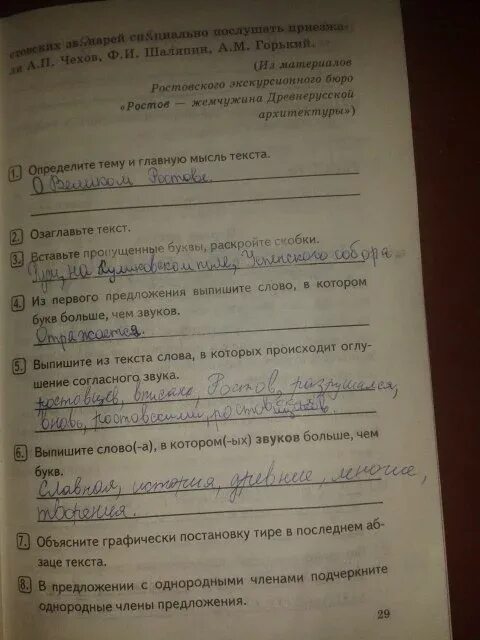 стовских звонарей специально послушать приезжа-
ли А.П. Чехов, Ф.И. Шаляпин, А.М. Горький.
(Из материалов
Ростовского экскурсионного бюро
«Ростов — жемчужина Древнерусской
архитектуры»)
1. Определите тему и главную мысль текста.
О Великом Ростове.
2. Озаглавьте текст.
3. Вставьте пропущенные буквы, раскройте скобки.
на Куликовском поле, Успенского собора
4. Из первого предложения выпишите слово, в котором
букв больше, чем звуков.
Отражается.
5. Выпишите из текста слова, в которых происходит оглу-
шение согласного звука.
ростовцев, вписано, Ростов, разрушался,
вновь, ростовскими,
6. Выпишите слово(-а), в котором(-ых) звуков больше, чем
букв.
славная, история, древние, многие,
творения.
7. Объясните графически постановку тире в последнем аб-
заце текста.
8. В предложении с однородными членами подчеркните
однородные члены предложения.
29